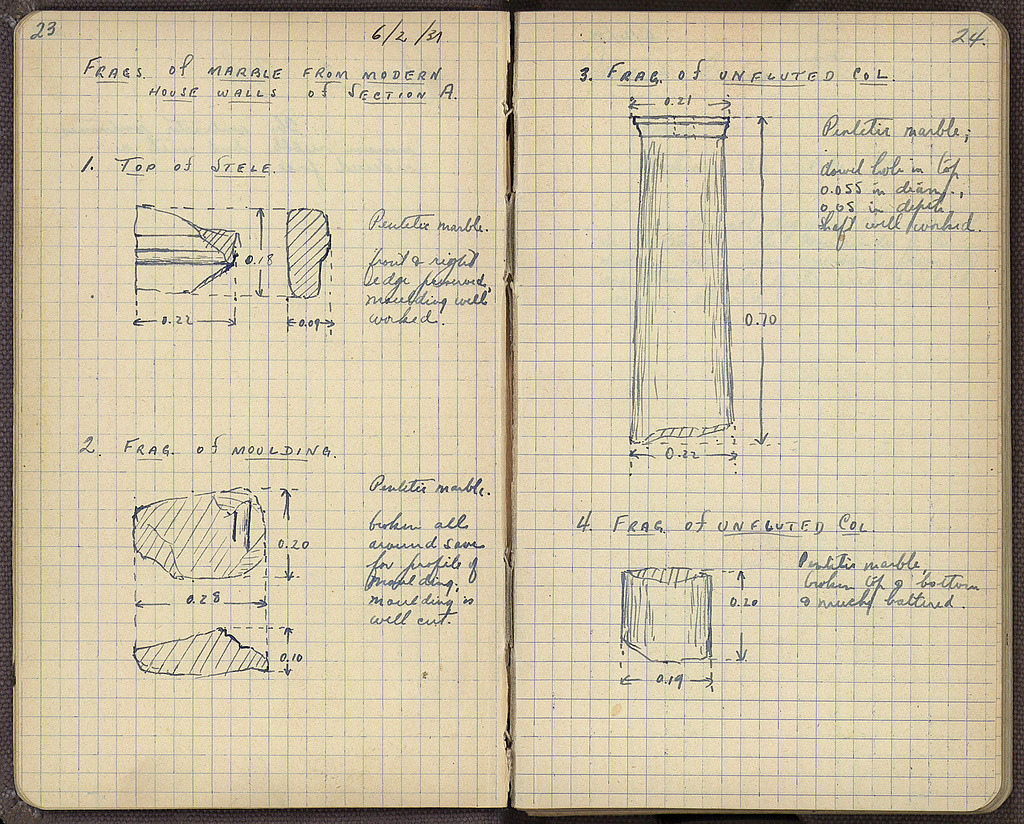 23
6/2/31
FRAGS. of MARBLE FROM MODERN
HOUSE WALLS of SECTION A.
1. TOP of STELE.
0.18
0.22
0.09
Pentelic marble.
front & right
edge preserved,
moulding well
worked.
2. FRAG. of MOULDING.
0.20
0.28
0.10
Pentelic marble.
broken all
around save
for profile of
moulding.
moulding is
well cut.
24.
3. FRAG. of UNFLUTED COL.
0.21
0.70
0.22
Pentelic marble;
dowel hole in top
0.055 in diam.,
0.05 in depth
shaft well worked.
4. FRAG. of UNFLUTED COL.
0.20
0.19
Pentelic marble,
broken top & bottom
& much battered.